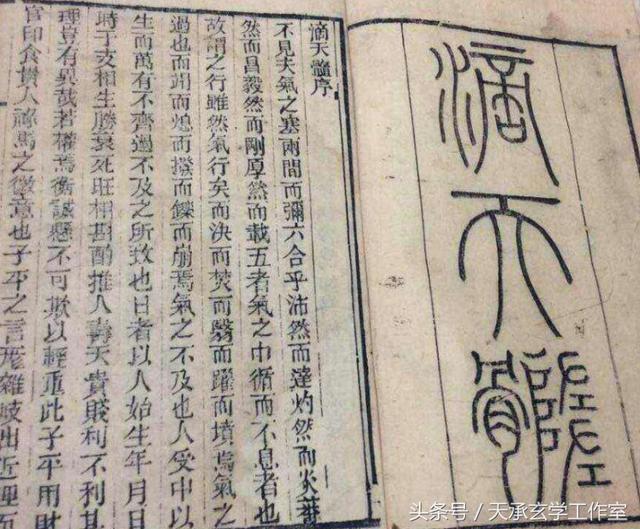 滴天髓
滴天髓序
不見夫氣之塞兩間而彌六合乎沛然而達灼然而炎蓊
然而昌毅然而剛厚然而載五者氣之中循而不息者也
故謂之行雖然氣行矣而決而焚而翳而躍而墳焉氣之
過也而涸而熄而撥而鑠而崩焉氣之不及也人受中以
生而萬有不齊過不及之所致也日者以人始生年月日
時干支相生勝衰死旺相斟酌推人壽夭貴賤利不利其
理豈有異哉若權焉衡誠懸不可欺以輕重此子平用財
官印食貴人祿馬之意也子平之言雜岐出近理
头条号/天承玄学工作室